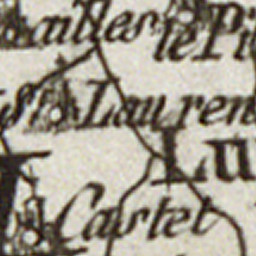 ailles
le Pi
St. Lauren
Lu
Castel